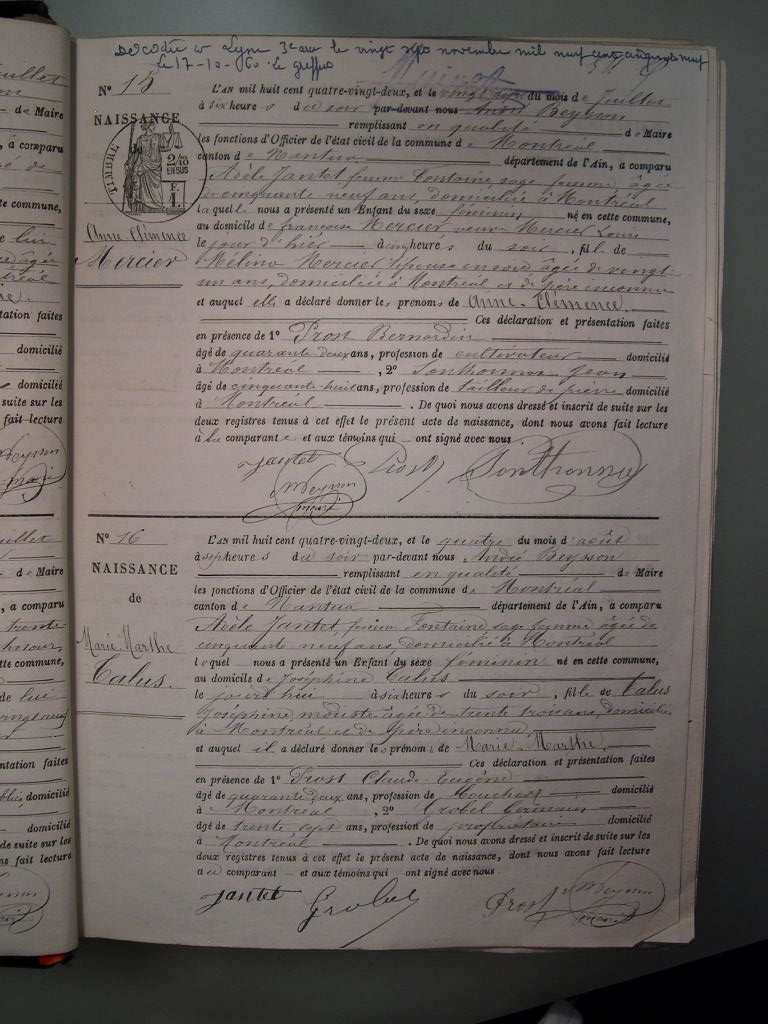 uillet
de Maire
à comparu
cette commune,
tation faites
domicilié
domicilié
suite sur les
fait lecture
de Maire
a comparu
tte commune,
de lui
tation faites
domicilié
domicilié
de suite sur les
ns fait lecture
Décédée à Lyon 3e arr le vingt sept novembre mil neuf cent cinquante neuf
le 17-12-60 le greffier
No 15
NAISSANCE
TIMBRE
2/10 EN SUS
F. 1.
Anne Clémence
Mercier
L'AN mil huit cent quatre-vingt-deux, et le vingt du mois de Juillet
à six heures du soir par-devant nous André Beysson
remplissant en qualité de Maire
les fonctions d'Officier de l'état civil de la commune de Montréal
canton de Nantua département de l'Ain, a comparu
Adèle Jantet femme Fontaine, sage femme, âgée
de cinquante neuf ans, domiciliée à Montréal
laquelle nous a présenté un Enfant du sexe féminin, né en cette commune,
au domicile de françoise Mercier veuve Mercier Louis
le jour d'hier à heures du soir, fille de
Mélina Mercier âgée de vingt-
un ans, domiciliée à Montréal et de père inconnu
et auquel elle a déclaré donner les prénoms de Anne-Clémence.
Ces déclaration et présentation faites
en présence de 1° Prost Bernardin
âgé de quarante deux ans, profession de cultivateur domicilié
à Montréal , 2° Sonthonnax Jean
âgé de cinquante huit ans, profession de tailleur de pierre domicilié
à Montréal . De quoi nous avons dressé et inscrit de suite sur les
deux registres tenus à cet effet le présent acte de naissance, dont nous avons fait lecture
à la comparante et aux témoins qui ont signé avec nous
Jantet Prost Sonthonnax
No 16
NAISSANCE
de
Marie Marthe
Calus.
L'AN mil huit cent quatre-vingt-deux, et le quatre du mois d'août
à sept heures du soir par-devant nous André Beysson
remplissant en qualité de Maire
les fonctions d'Officier de l'état civil de la commune de Montréal
canton de Nantua département de l'Ain, a comparu
Adèle Jantet, femme Fontaine, sage femme âgée de
cinquante neuf ans, domiciliée à Montréal
lequel nous a présenté un Enfant du sexe féminin né en cette commune,
au domicile de Joséphine Calus
le jourd'hui à six heures du soir, fille de Calus
Joséphine, modiste âgée de trente trois ans, domiciliée
à Montréal et de père inconnu,
et auquel il a déclaré donner les prénoms de Marie-Marthe.
Ces déclaration et présentation faites
en présence de 1° Prost Claude Eugène
âgé de quarante deux ans, profession de boucher domicilié
à Montréal , 2° Grobel Germain
âgé de trente sept ans, profession de propriétaire domicilié
à Montréal . De quoi nous avons dressé et inscrit de suite sur les
deux registres tenus à cet effet le présent acte de naissance, dont nous avons fait lecture
a comparant et aux témoins qui ont signé avec nous
Jantet Grobel Prost